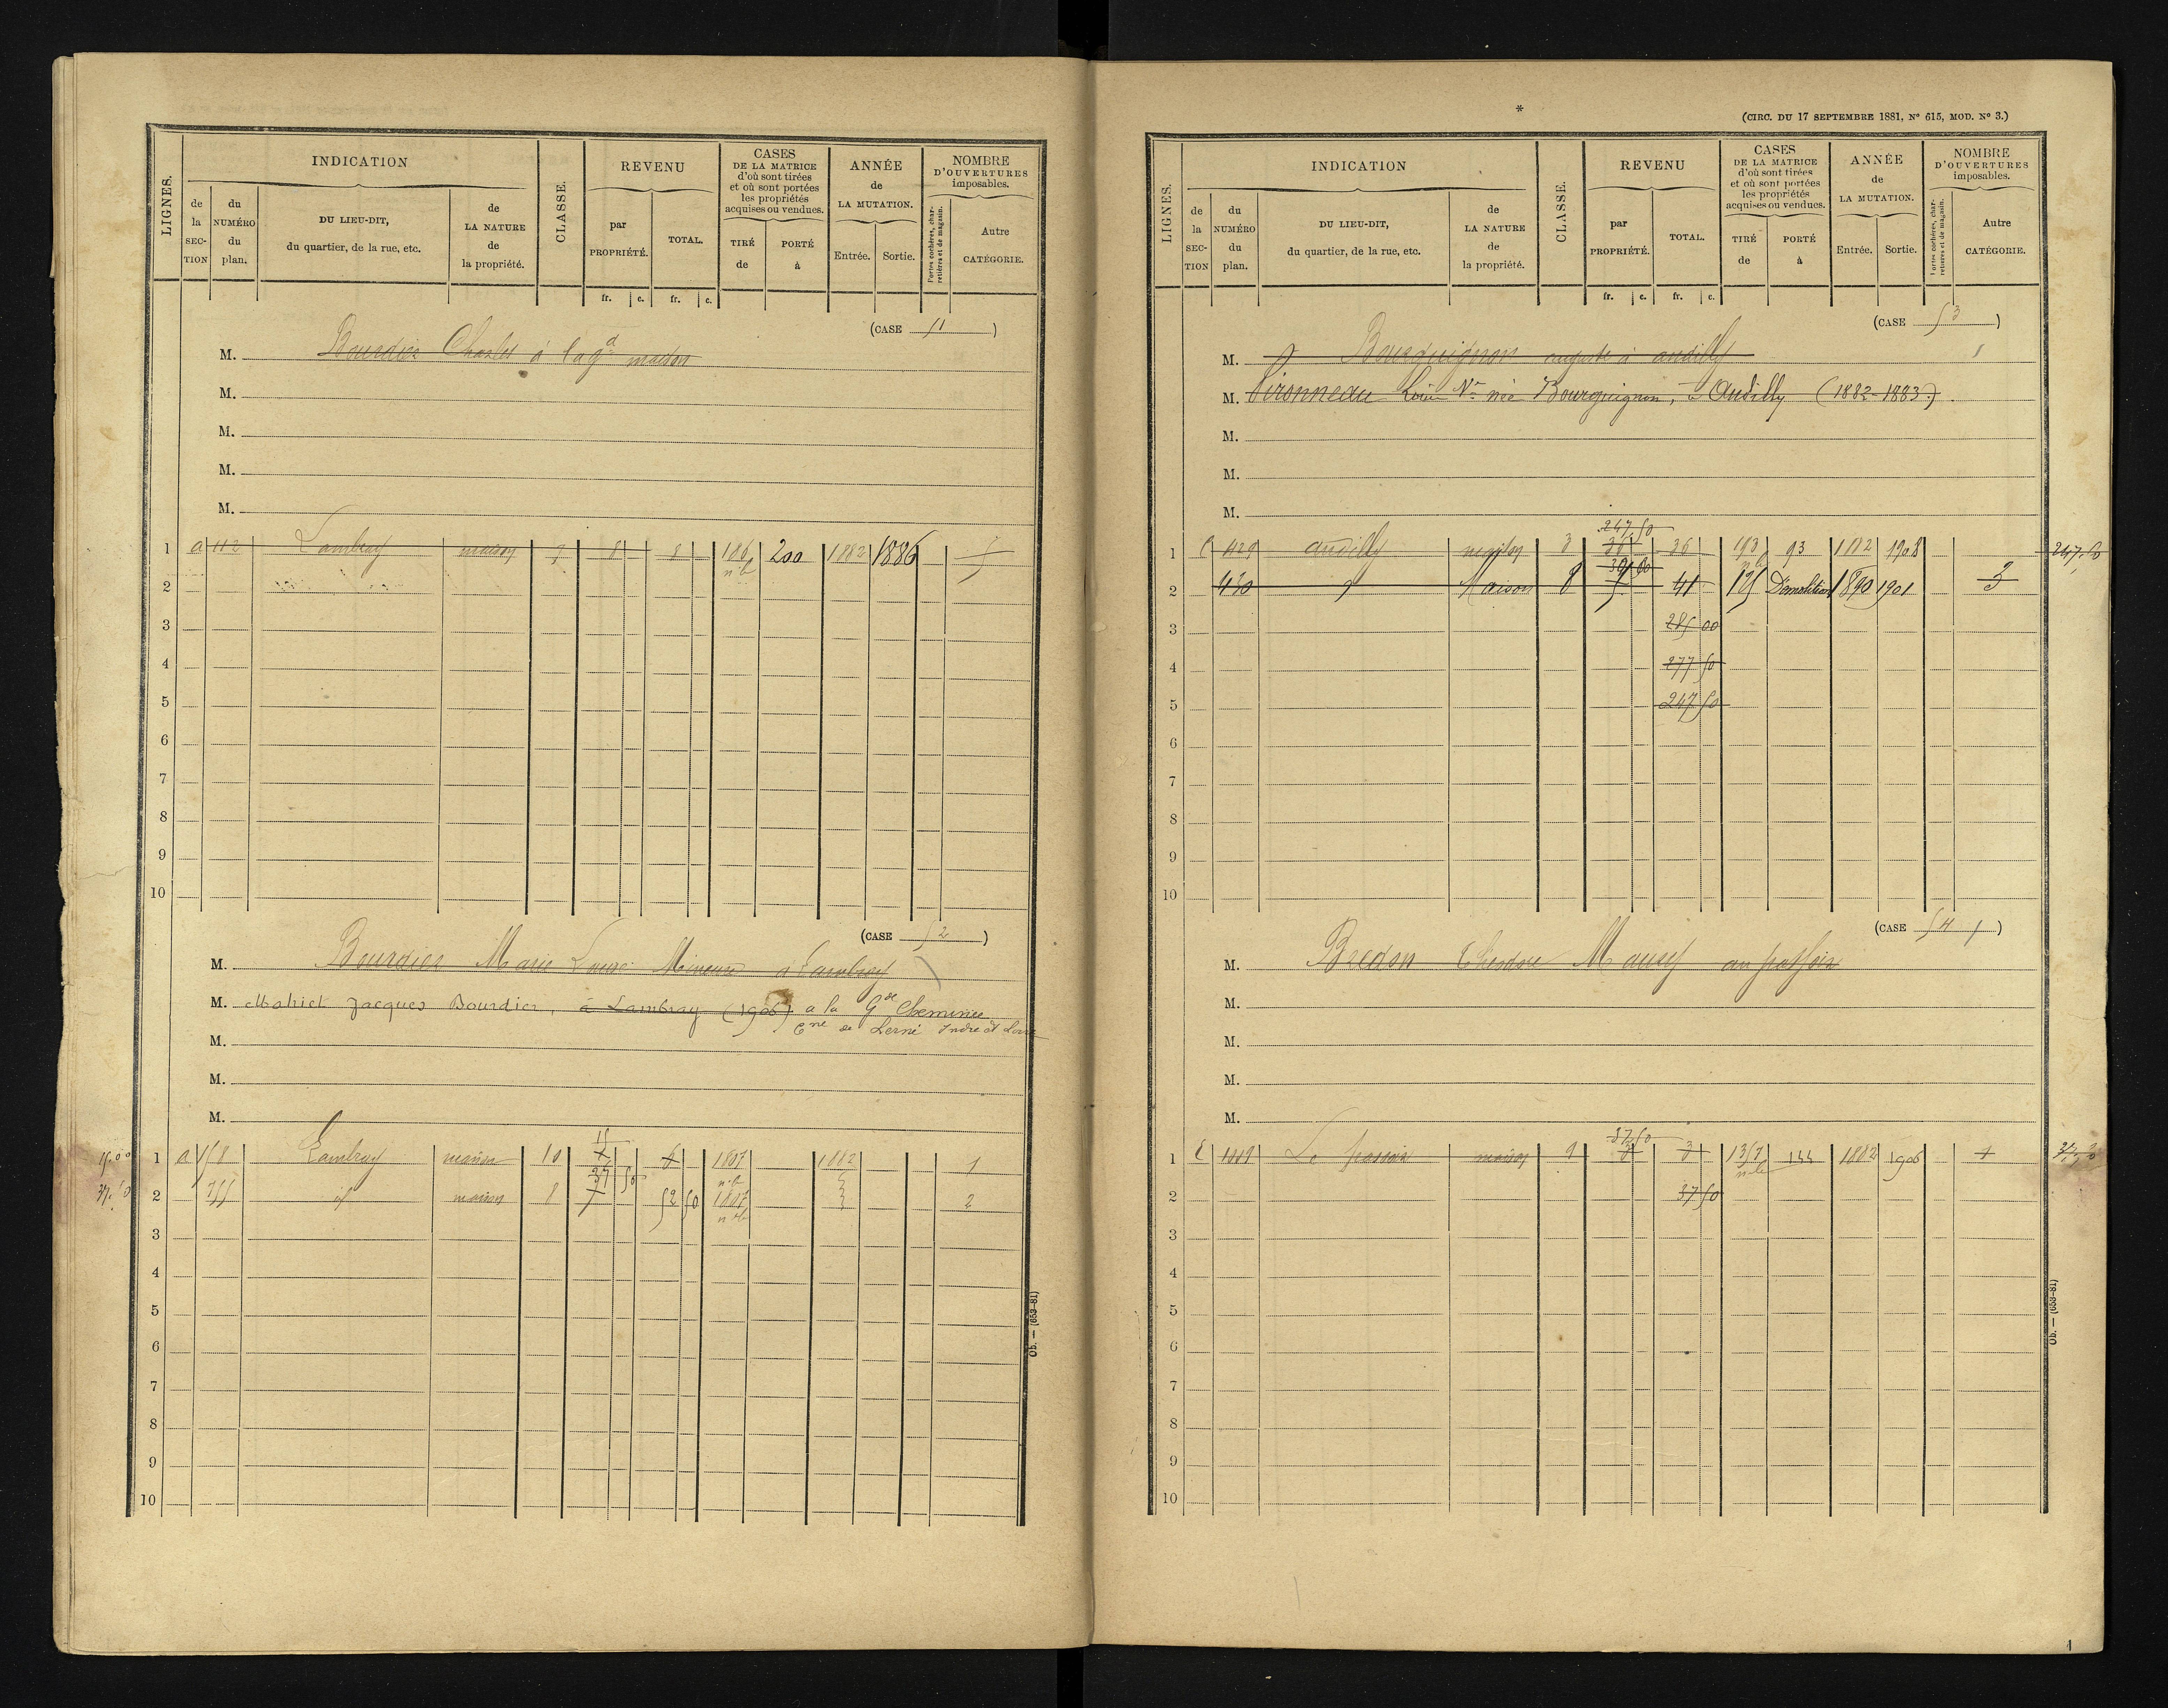 LIGNES. INDICATION CLASSE. REVENU CASES DE LA MATRICE d'où sont tirées et où sont portées les propriétés acquises ou vendues. ANNÉE de LA MUTATION. NOMBRE D'OUVERTURES imposables.
de la SECTION du NUMÉRO du plan. DU LIEU-DIT, du quartier, de la rue, etc. de LA NATURE de la propriété. par PROPRIÉTÉ. TOTAL. TIRÉ de PORTÉ à Entrée. Sortie. Portes cochères, charretières et de magasin. Autre CATÉGORIE.
fr. c. fr. c.
(CASE 51)
M. Bourdier Charles à la gd maison
M.
M.
M.
M.
1 a 112 Lambray maison 9 8 8 200 1882 1886
2
3
4
5
6
7
8
9
10
(CASE 52)
M. Bourdier Marie Mineure à Lambray
M. Mahiet Jacques Bourdier, à Lambray (1906) a la Gde Cheminée
Cne de Lerné Indre et Loire
M.
M.
M.
15.00 1 a 758 Lambray maison 10 15 1882 1
37.50 2 755 id maison 8 37 50 52 50 2
3
4
5
6
7
8
9
10
Ob. — (653-81)
*
(CIRC. DU 17 SEPTEMBRE 1881, N° 615, MOD. N° 3.)
LIGNES. INDICATION CLASSE. REVENU CASES DE LA MATRICE d'où sont tirées et où sont portées les propriétés acquises ou vendues. ANNÉE de LA MUTATION. NOMBRE D'OUVERTURES imposables.
de la SECTION du NUMÉRO du plan. DU LIEU-DIT, du quartier, de la rue, etc. de LA NATURE de la propriété. par PROPRIÉTÉ. TOTAL. TIRÉ de PORTÉ à Entrée. Sortie. Portes cochères, charretières et de magasin. Autre CATÉGORIE.
fr. c. fr. c.
(CASE 53)
M. Bourguignon auguste à andilly
M. Louis Ve née Bourguignon, à Andilly (1882-1883)
M.
M.
M.
247 50
1 429 andilly maison 3 36 36 193 93 1882 1908 247.50
30 00
2 430 Maison 8 5 41 125 Démolition 1890 1901 3
3 285 00
4 277 50
5 247 50
6
7
8
9
10
(CASE 54)
M. Bredon Theodore
M.
M.
M.
M.
37 50
1 1119 Le maison 9 3 3 1357 144 1882 1906 1
2 37 50
3
4
5
6
7
8
9
10
Ob. — (653-81)